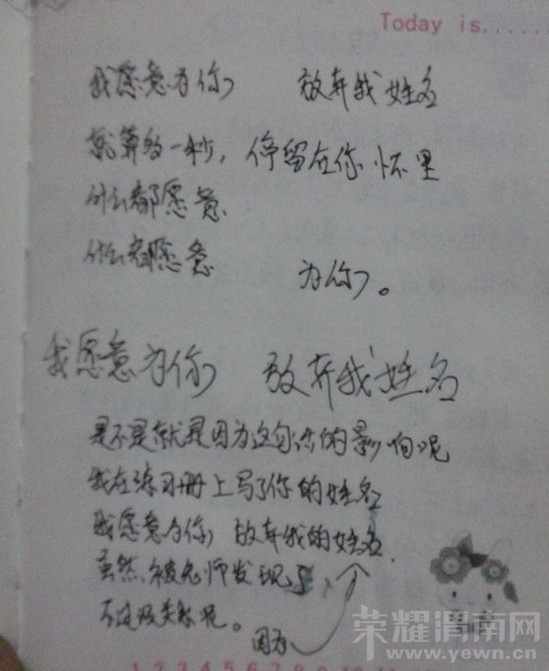 Today is......
我愿意为你 放弃我姓名
就算多一秒，停留在你怀里
什么都愿意
什么都愿意 为你。
我愿意为你 放弃我姓名
是不是就是因为这句话的影响呢
我在练习册上写了你的姓名
我愿意为你 放弃我的姓名
虽然被老师发现了
不过没关系呢。 因为
荣耀渭南网
www.yewn.cn
1 2 3 4 5 6 7 8 9 10 11